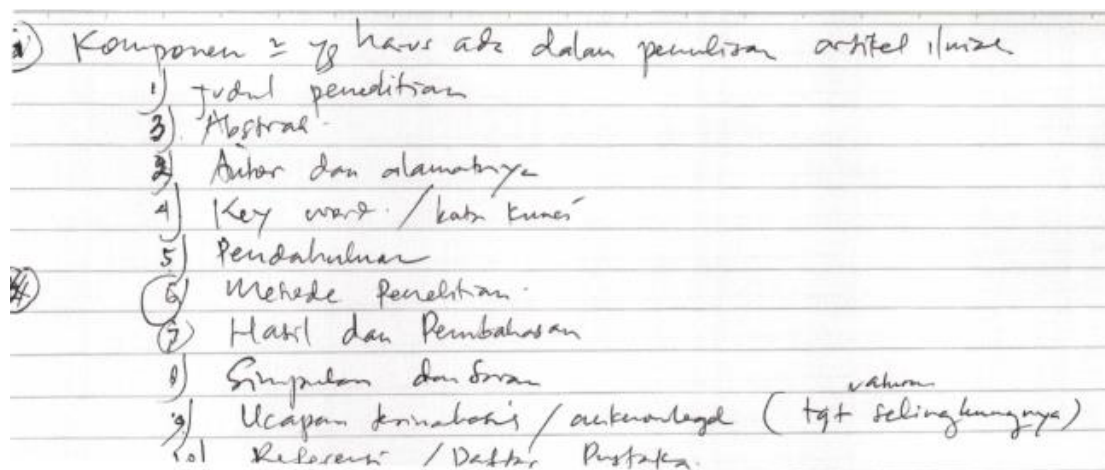 Komponen 2 yg harus ada dalam penulisan artikel ilmiah
1) Judul penelitian
3) Abstrak
2) Autor dan alamatnya
4) Key word / kata kunci
5) Pendahuluan
6) Metode Penelitian
7) Hasil dan Pembahasan
8) Simpulan dan Saran
9) Ucapan terimakasih / acknowledge ( tgt selingkungnya )
10) Referensi / Daftar Pustaka